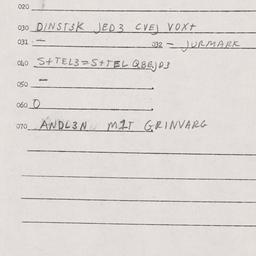 020
030 DINST3K JED3 CVEJ VOX+
031 – 032 – JURMARK
040 S+TEL3=S+TEL Q8EJD3
–
050
060 O
070 ANDL3N M1T GRINVARG